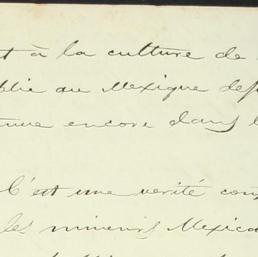 t à la culture de
blié au Mexique dep
encore dans l
C'est une verité con
les mineurs Mexica